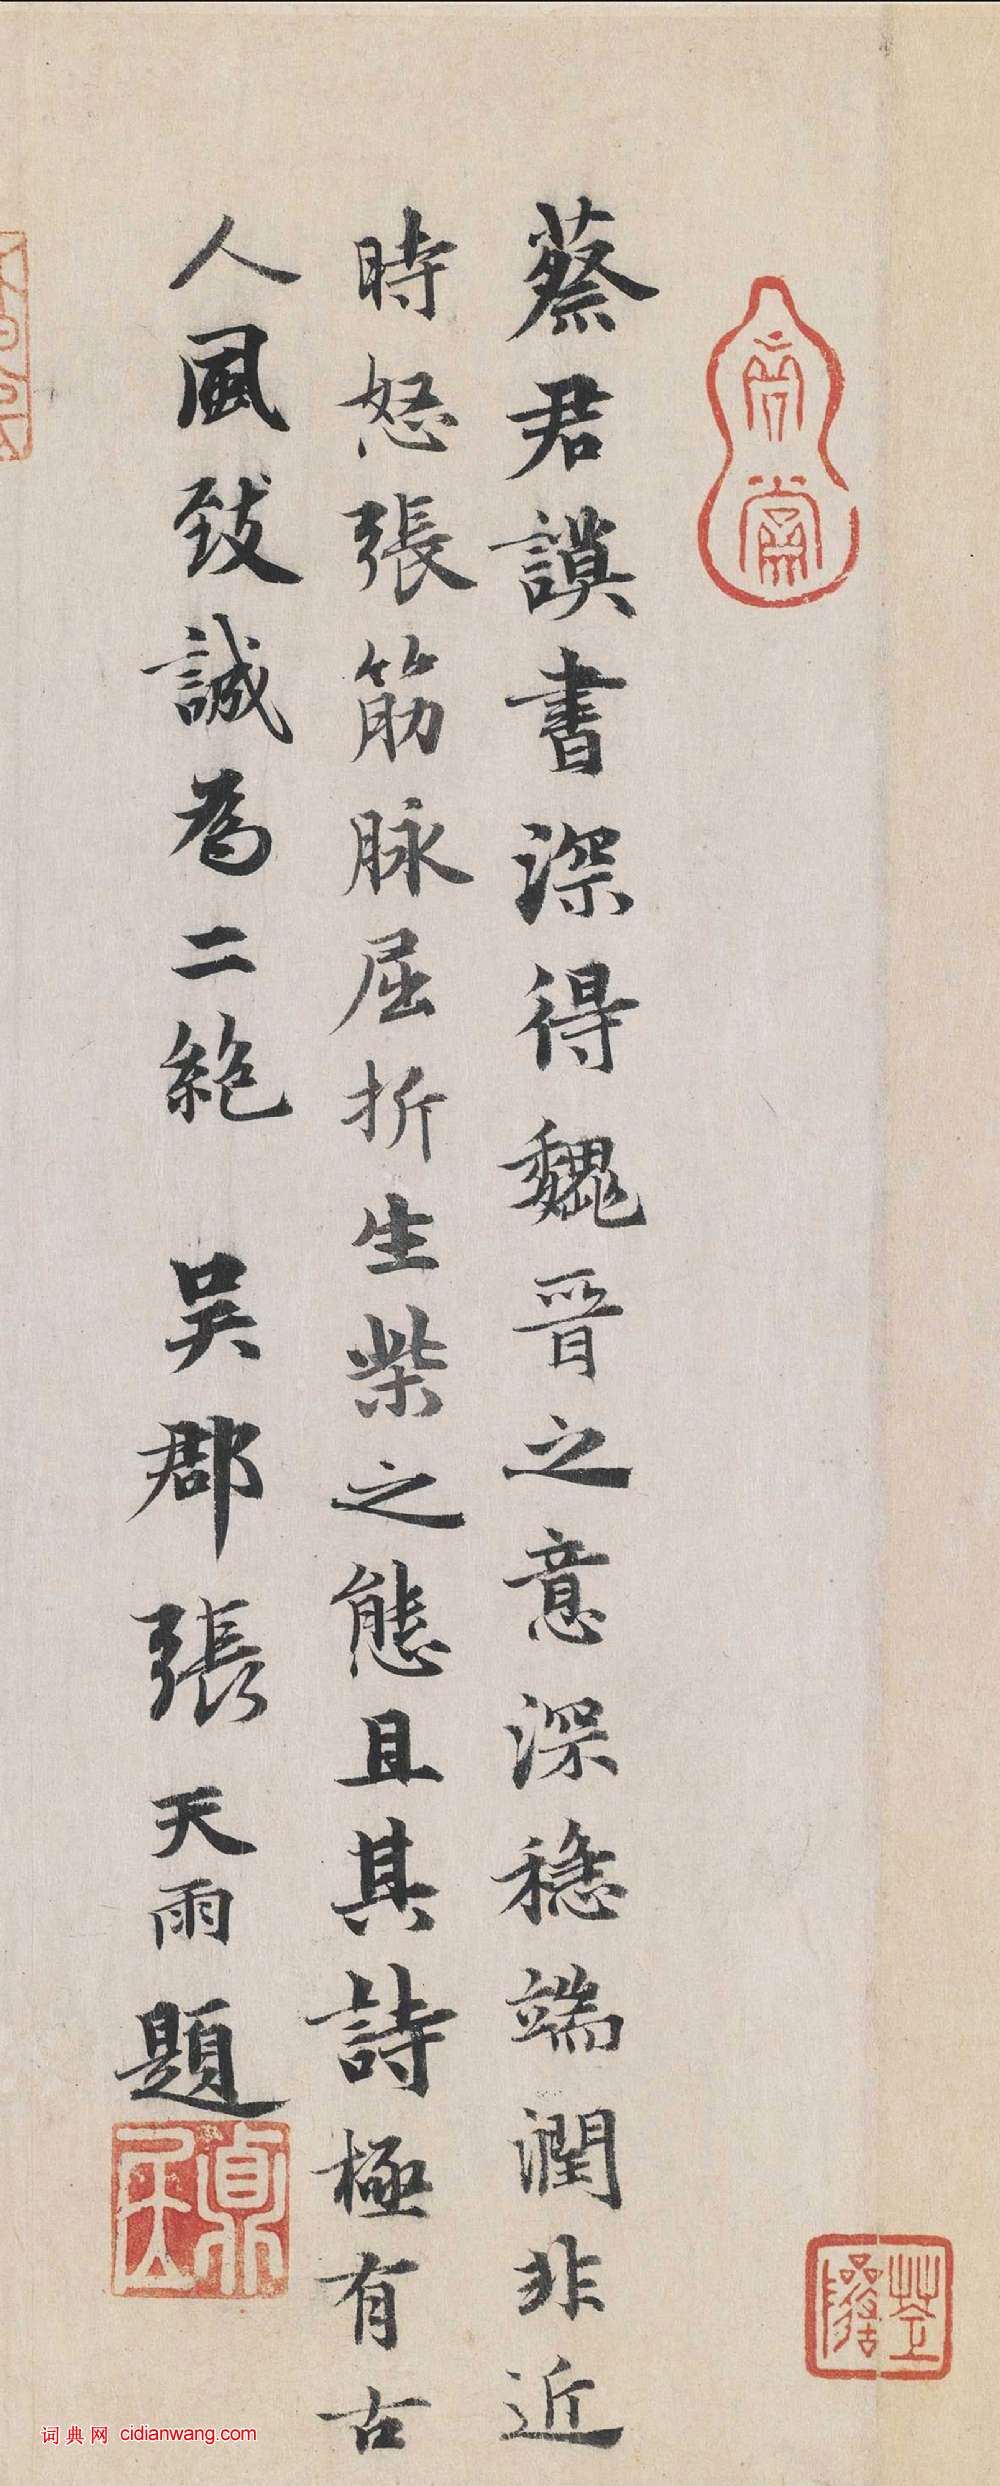 蔡君謨書深得魏晉之意深穩端潤非近
時怒張筋脉屈折生柴之態且其詩極有古
人風致誠為二絶 吳郡張天雨題
词典网 cidianwang.com